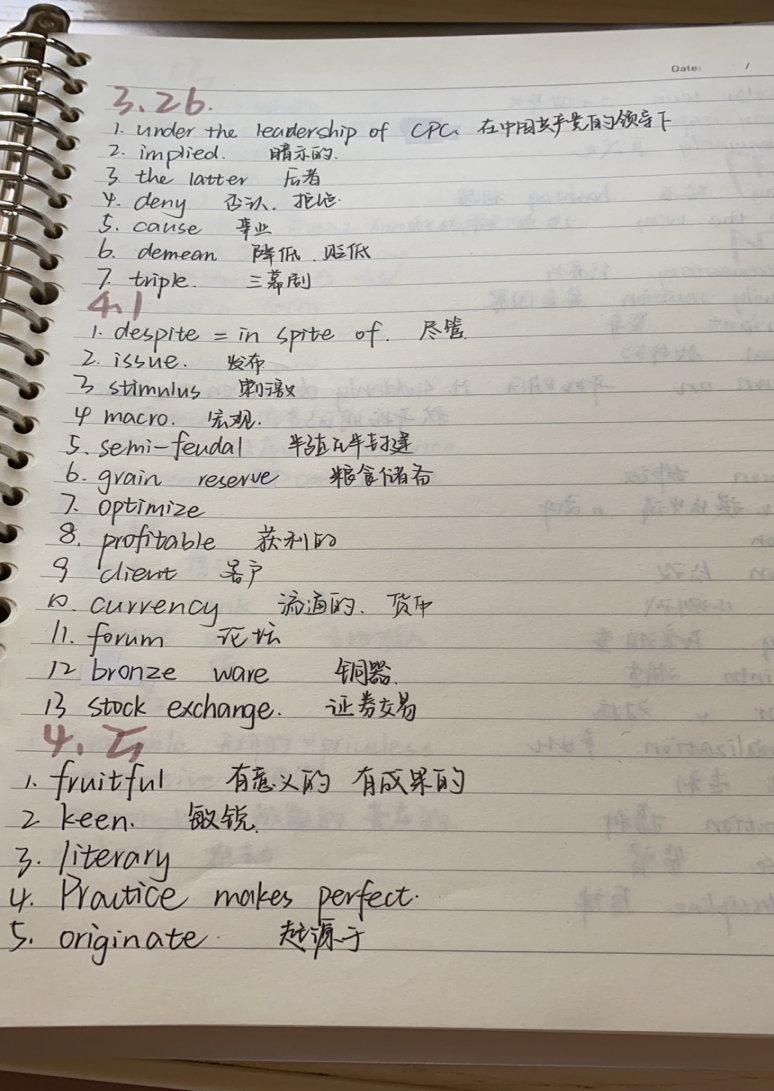 Date: /
3.26.
1. under the leadership of CPC. 在中国共产党的领导下
2. implied. 暗示的.
3. the latter 后者
4. deny 否认. 拒绝.
5. cause 事业
6. demean 降低. 贬低
7. triple. 三幕剧
4.1
1. despite = in spite of. 尽管.
2. issue. 发布
3 stimulus 刺激
4 macro. 宏观.
5. semi-feudal 半殖民半封建
6. grain reserve 粮食储备
7. optimize
8. profitable 获利的
9 client 客户
10. currency 流通的. 货币
11. forum 论坛
12 bronze ware 铜器.
13 stock exchange. 证券交易
1. fruitful 有意义的 有成果的
2 keen. 敏锐.
3. literary
4. Practice makes perfect.
5. originate. 起源于